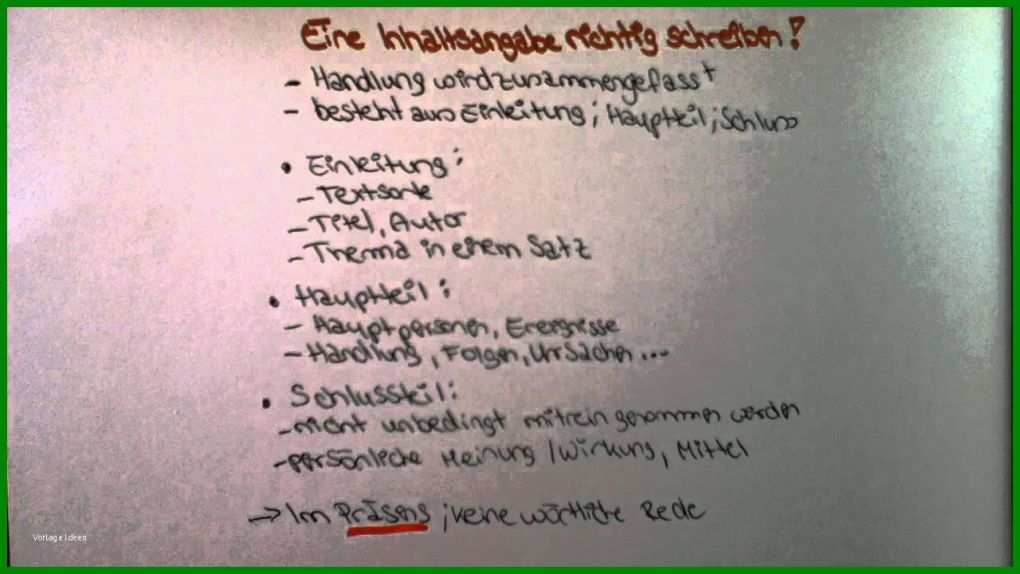 Eine Inhaltsangabe richtig schreiben!
- Handlung wird zusammengefasst
- besteht aus Einleitung; Hauptteil; Schluss
• Einleitung:
- Textsorte
- Titel, Autor
- Thema in einem Satz
• Hauptteil:
- Hauptpersonen, Ereignisse
- Handlung, Folgen, Ursachen ...
• Schlussteil:
- nicht unbedingt mitrein genommen werden
- persönliche Meinung / Wirkung, Mittel
→ Im Präsens ; keine wörtliche Rede
Vorlage Ideen